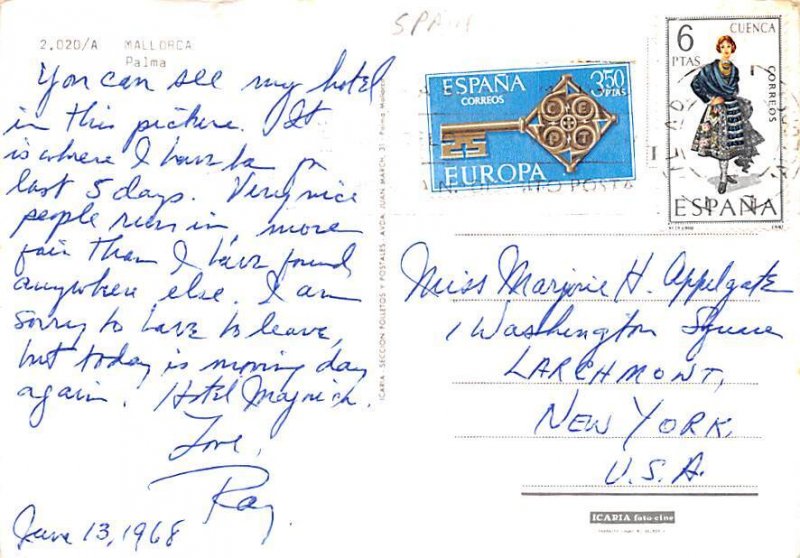 SPAIN
2.020/A MALLORCA
Palma
You can see my hotel
in this picture. It
is where I have be for
last 5 days. Very nice
people run in, more
fair than I have found
anywhere else. I am
sorry to have to leave,
but today is moving day
again. Hotel
Love,
Ray
June 13, 1968
ICARIA SECCION FOLLETOS Y POSTALES AVDA JUAN MARCH, 31 Palma Mallorca
ESPAÑA
CORREOS
3,50
PTAS
EUROPA
6
PTAS
CUENCA
CORREOS
ESPAÑA
Miss Marjorie H. Appelgate
1 Washington Square
LARCHMONT,
NEW YORK,
U.S.A.
ICARIA foto-cine